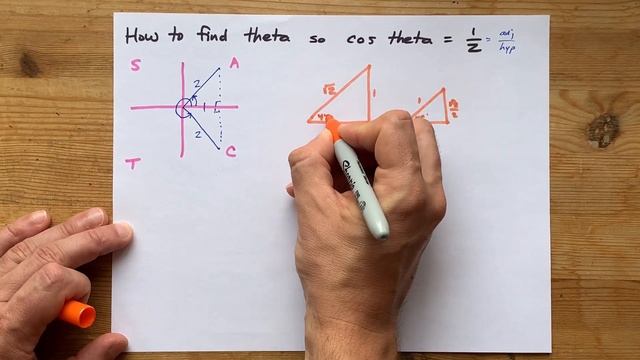 How to find theta so cos theta = 1/2 = adj/hyp
S A
2
1
2
T C
√2 1
1 √2/2
Sharpie